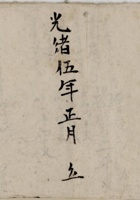 光绪伍年正月 立